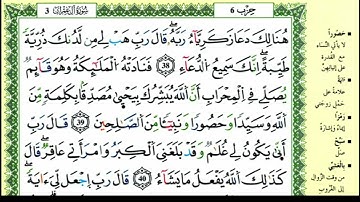 3 سُورَةُ آلِ عِمْرَانَ حِزْب 6
هُنَالِكَ دَعَا زَكَرِيَّاءُ رَبَّهُ قَالَ رَبِّ هَبْ لِے مِن لَّدُنكَ ذُرِّيَّةً
طَيِّبَةً اِنَّكَ سَمِيعُ الدُّعَآءِ 38 فَنَادَتْهُ الْمَلَٰٓئِكَةُ وَهُوَ قَآئِمٌ
يُصَلِّے فِے الْمِحْرَابِ أَنَّ اللَّهَ يُبَشِّرُكَ بِيَحْيَىٰ مُصَدِّقاً بِكَلِمَةٍ مِّنَ
اَللَّهِ وَسَيِّداً وَحَصُوراً وَنَبِيٓـٔاً مِّنَ اَلصَّٰلِحِينَ 39 قَالَ رَبِّ
أَنَّىٰ يَكُونُ لِے غُلَٰمٌ وَقَدْ بَلَغَنِيَ اَلْكِبَرُ وَامْرَأَتِے عَاقِرٌ قَالَ
كَذَٰلِكَ اَللَّهُ يَفْعَلُ مَا يَشَآءُ 40 قَالَ رَبِّ اِجْعَل لِّيَ ءَايَةً
حَصُوراً
لا يأتي النساء
مع القدرة
على إتيانهن
آيَةً
علامة على
حمل زوجتي
رَمْزاً
إيماء وإشارة
سَبِّحْ
صلّ
بِالْعَشِيِّ
من وقت الزوال
إلى الغروب